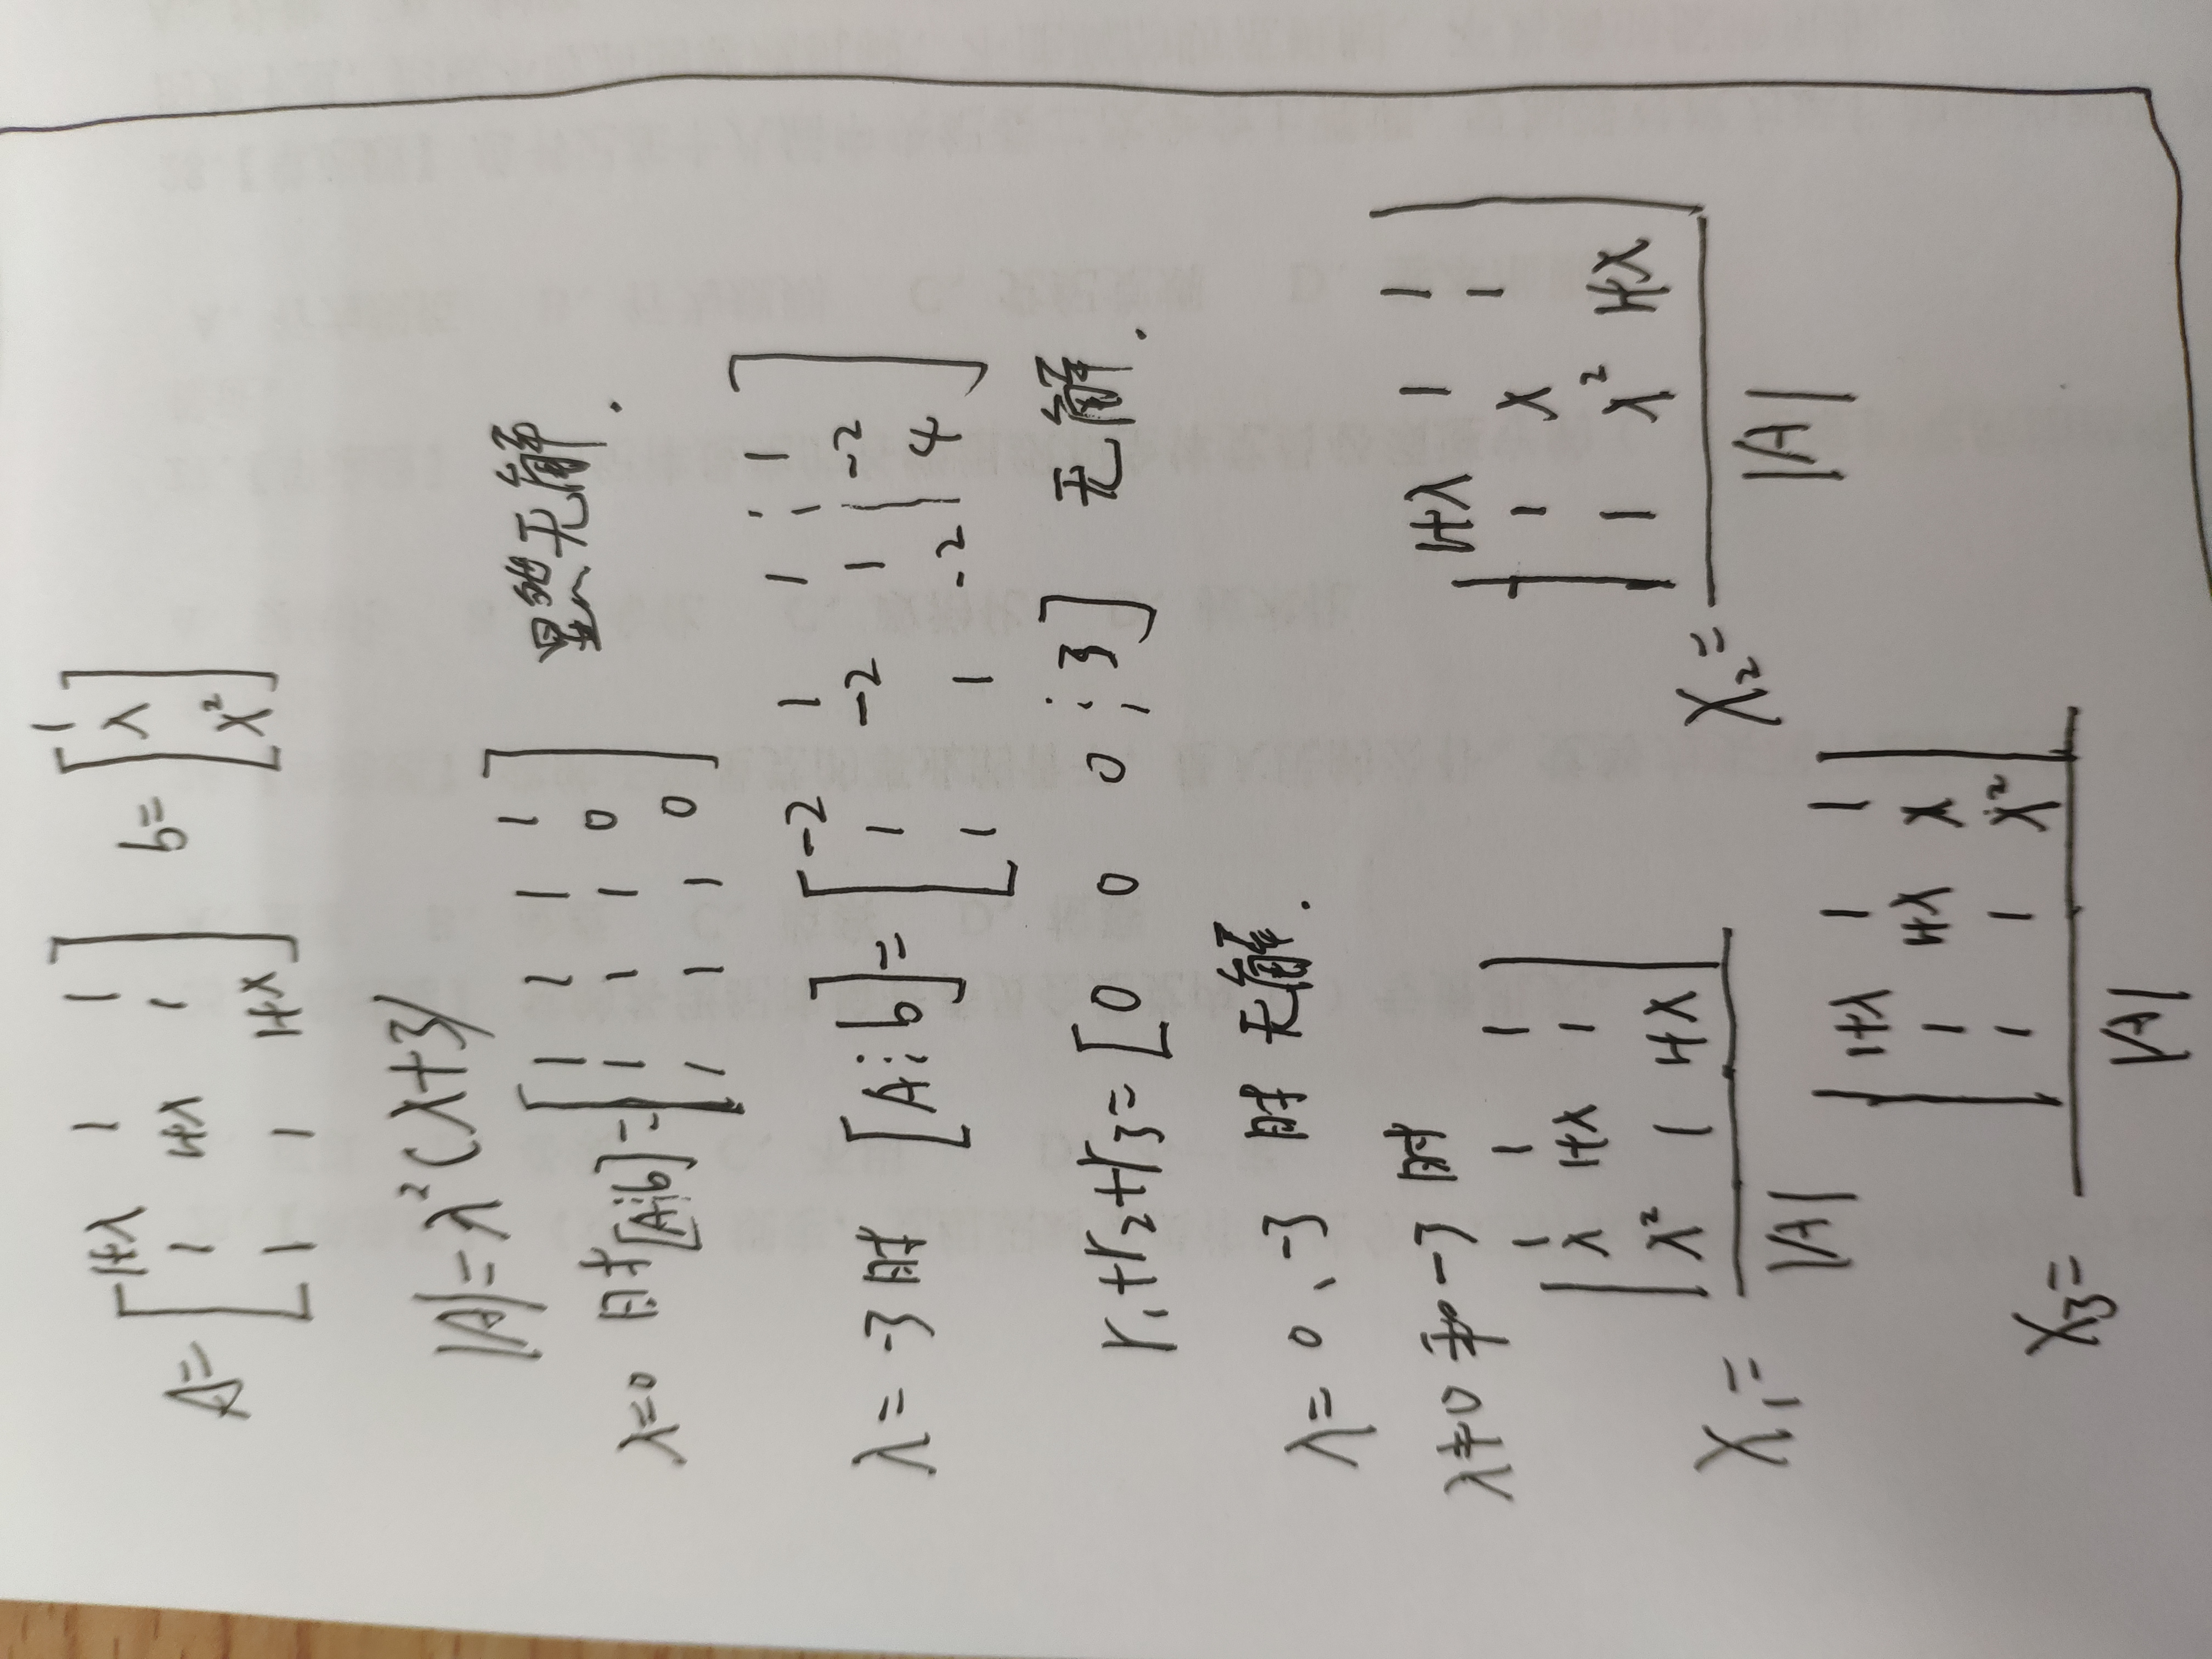 A= [ 1+λ 1 1 ] b= [ 1 ]
[ 1 1+λ 1 ] [ λ ]
[ 1 1 1+λ ] [ λ² ]
|A|=λ²(λ+3)
λ=0 时 [A⋮b]= [ 1 1 1 1 ] 显然无解.
[ 1 1 1 0 ]
[ 1 1 1 0 ]
λ=-3 时 [A⋮b]= [ -2 1 1 ⋮ 1 ]
[ 1 -2 1 | -2 ]
[ 1 1 -2 | 4 ]
r₁+r₂+r₃= [0 0 0 ⋮ 3] 无解.
λ=0、-3 时 无解.
λ≠0 和 -3 时
x₁= | 1 1 1 | x₂= | 1+λ 1 1 |
| λ 1+λ 1 | | 1 λ 1 |
| λ² 1 1+λ | | 1 λ² 1+λ |
|A| |A|
x₃= | 1+λ 1 1 |
| 1 1+λ λ |
| 1 1 λ² |
|A|